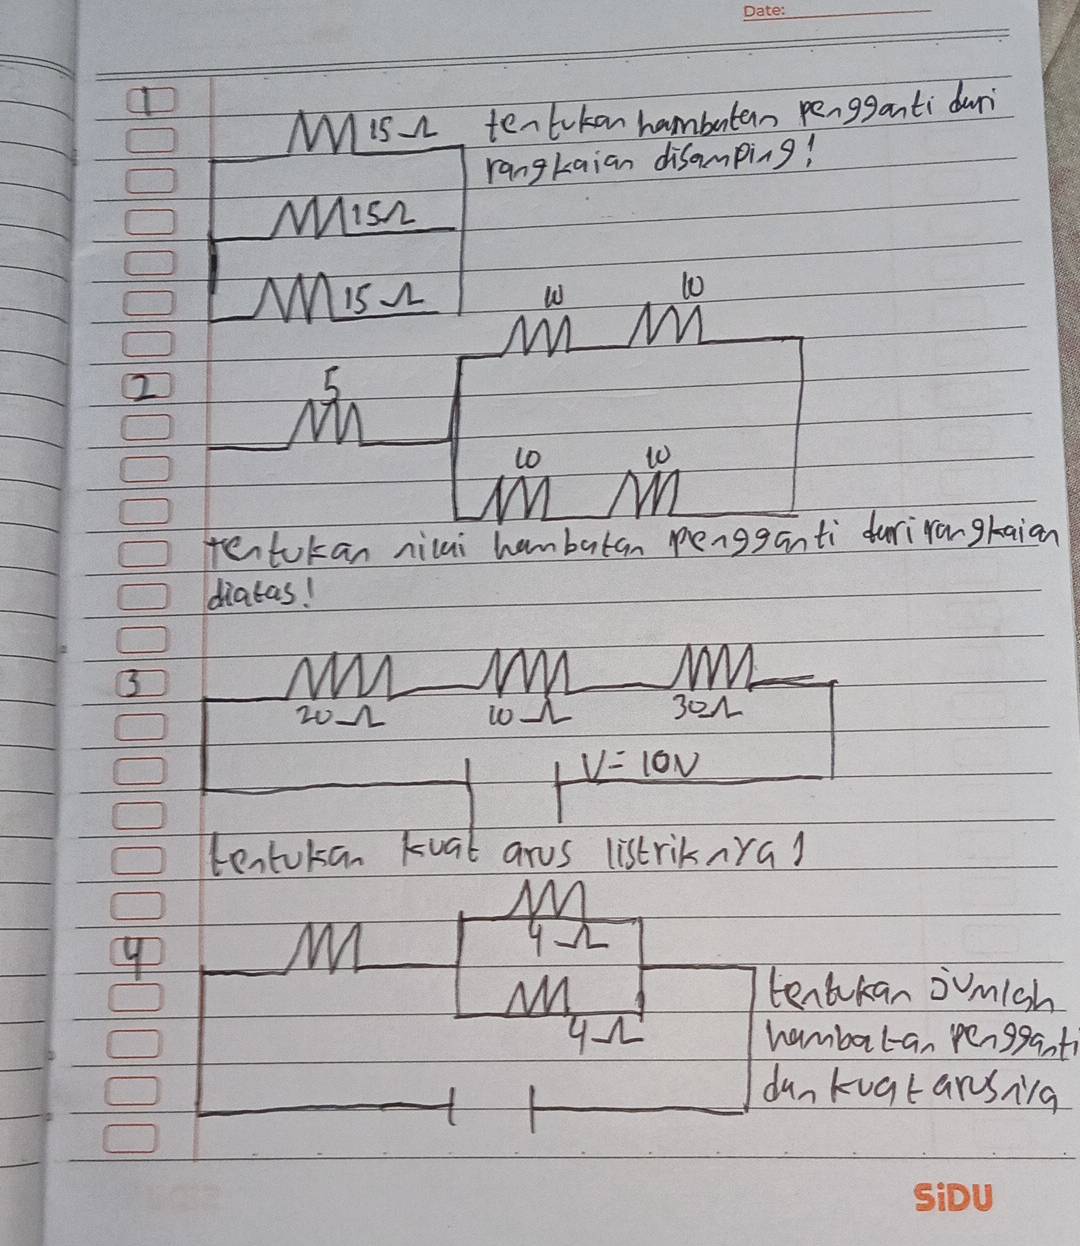 Date:
1
15Ω tentukan hambatan pengganti dari
rangkaian disamping!
15Ω
15Ω
10 10
2
5
10 10
tentukan nilai hambatan pengganti dari rangkaian
diatas!
3
20Ω 10Ω 30Ω
V=10V
tentukan kuat arus listriknya!
4
4Ω
4Ω
tentukan jumlah
hambatan pengganti
dan kuat arusnya
SiDU